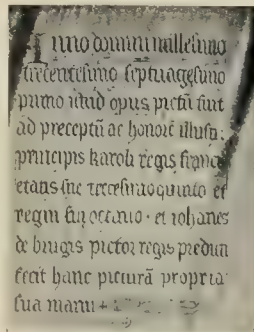 Anno domini millesimo
trecentesimo septuagesimo
primo istud opus pictū fuit
ad preceptū ac honorē illustr:
principis karoli regis francie
etatis sue tricesimo quinto et
regni sui octauo · et iohanes
de brugis pictor regis predicti
fecit hanc picturā propria
sua manu